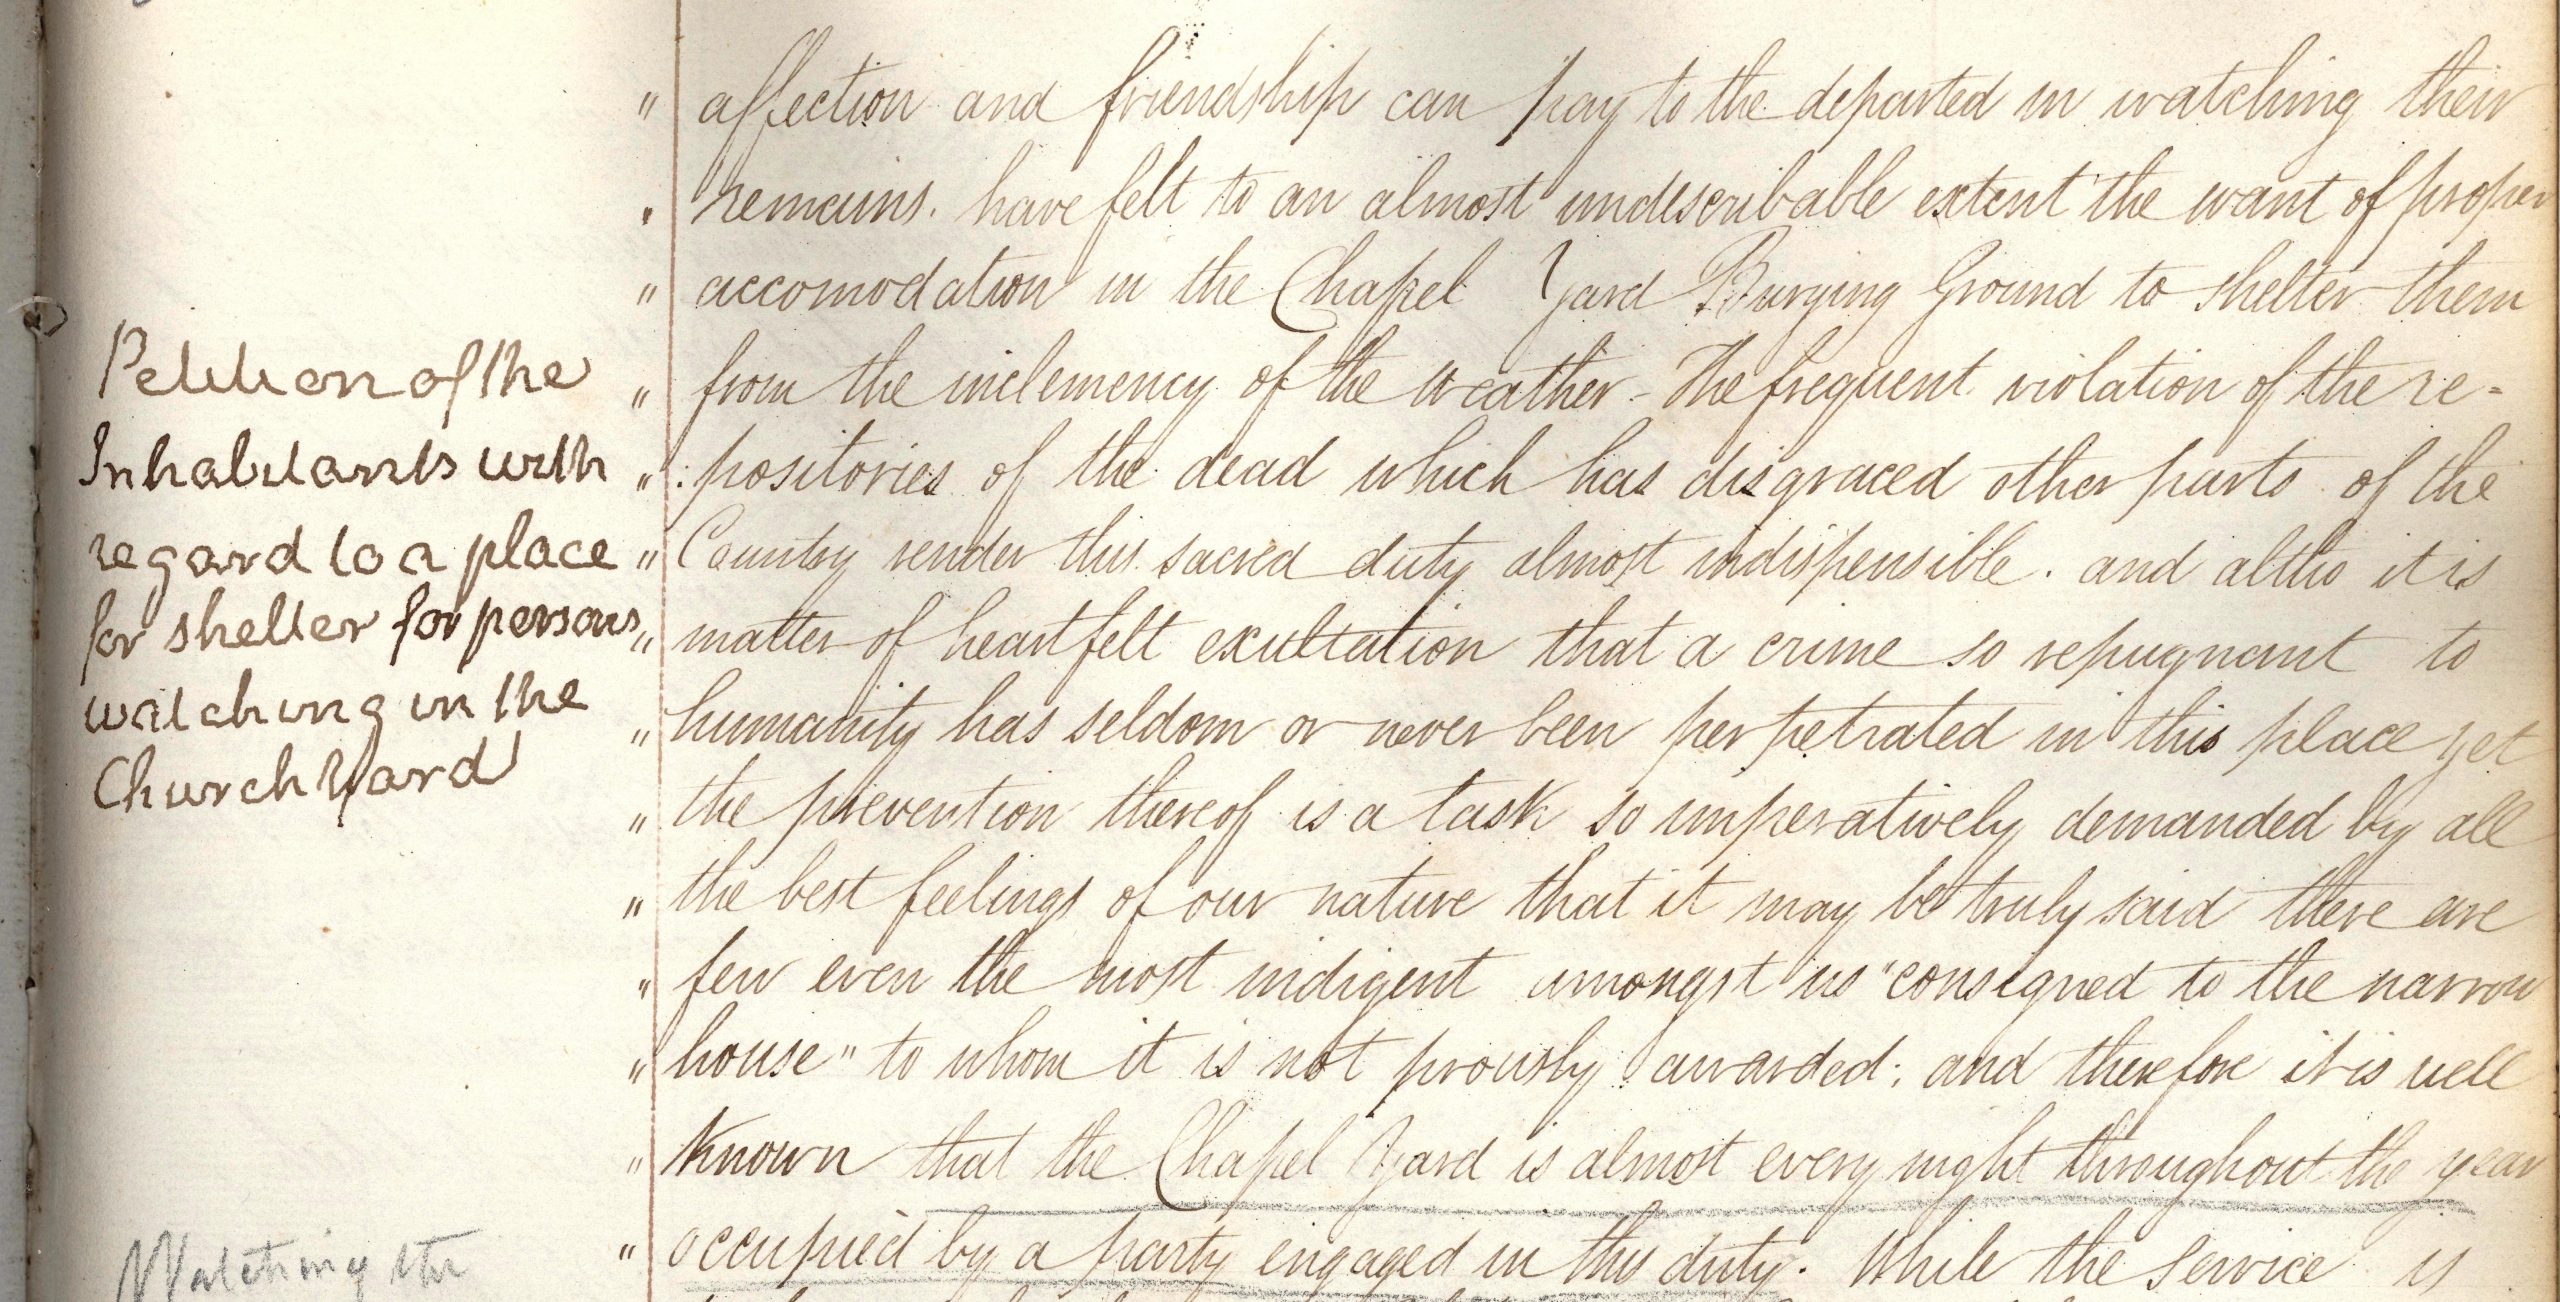 " affection and friendship can pay to the departed in watching their
" remains. have felt to an almost undescribable extent the want of proper
" accomodation in the Chapel Yard Burying Ground to shelter them
" from the inclemency of the weather - The frequent violation of the re=
" :positories of the dead which has disgraced other parts of the
" Country render this sacred duty almost indispensible. and altho it is
" matter of heartfelt exultation that a crime so repugnant to
" humanity has seldom or never been perpetrated in this place yet
" the prevention thereof is a task so imperatively demanded by all
" the best feelings of our nature that it may be truly said there are
" few even the most indigent amongst us "consigned to the narrow
" house" to whom it is not piously awarded; and therefore it is well
" known that the Chapel Yard is almost every night throughout the year
" occupied by a party engaged in this duty. While the service is
Petition of the
Inhabitants with
regard to a place
for shelter for persons
watching in the
Church Yard
Watching the